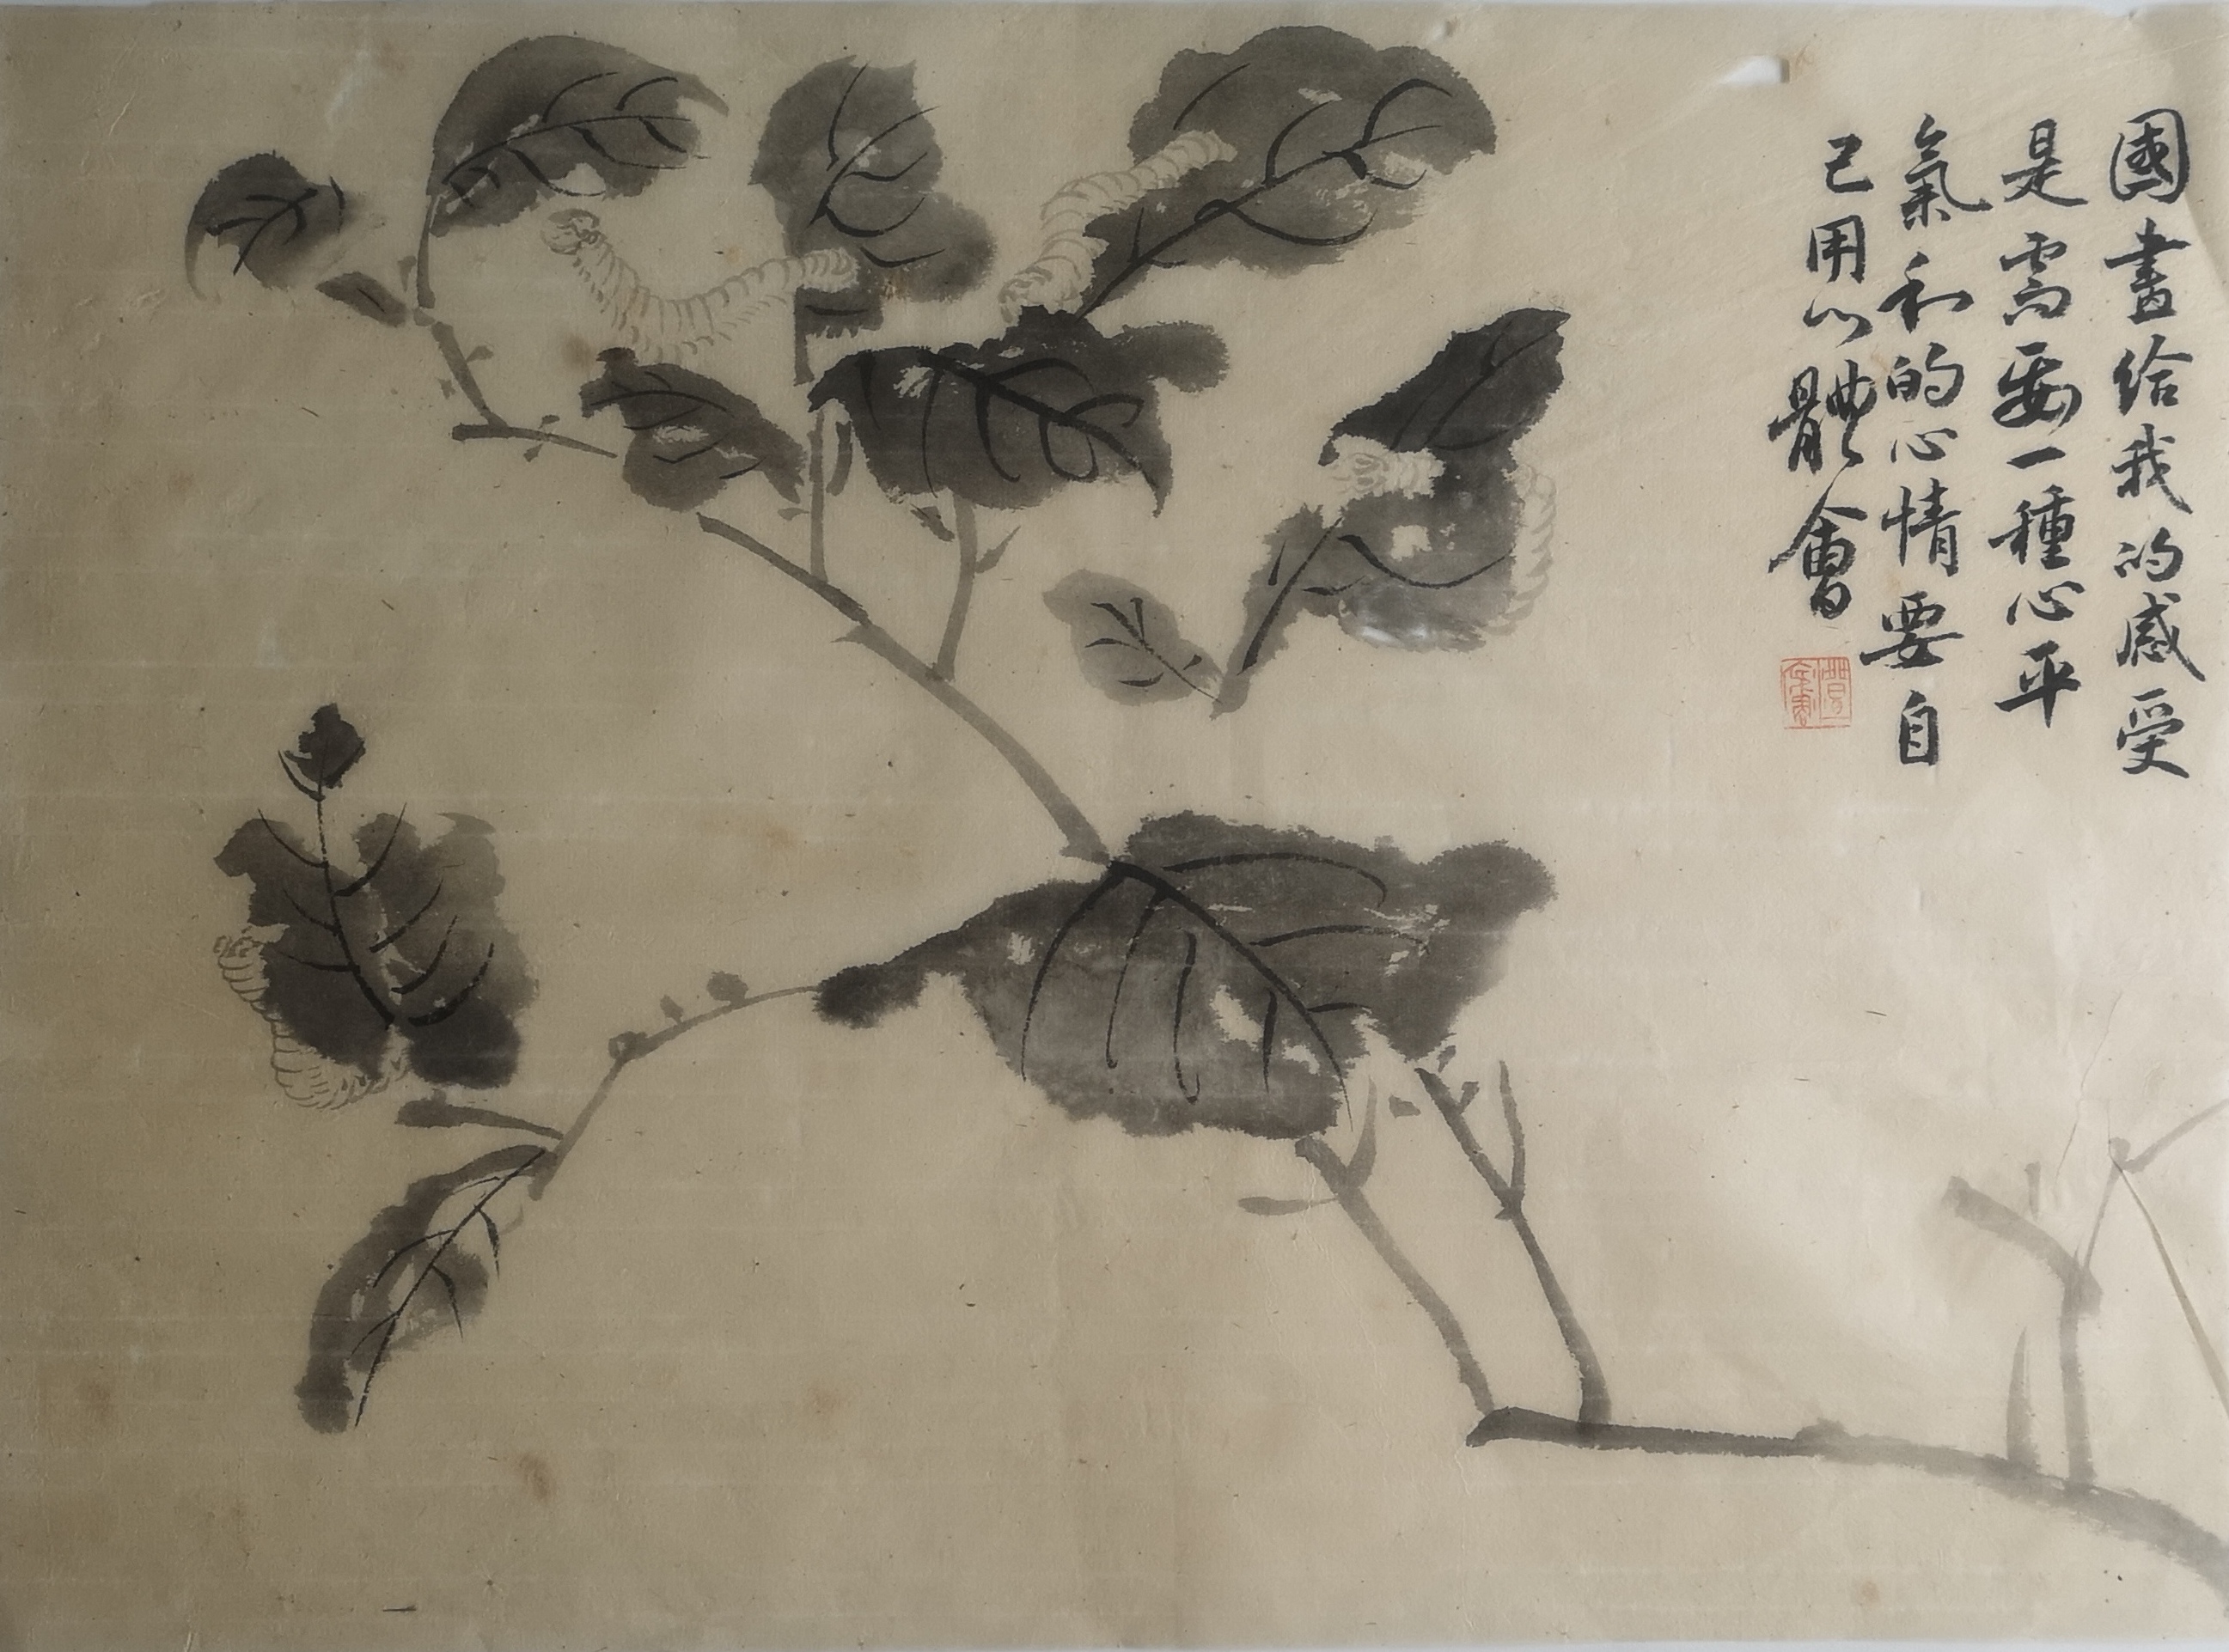 國畫給我的感受
是需要一種心平
氣和的心情要自
己用心體會